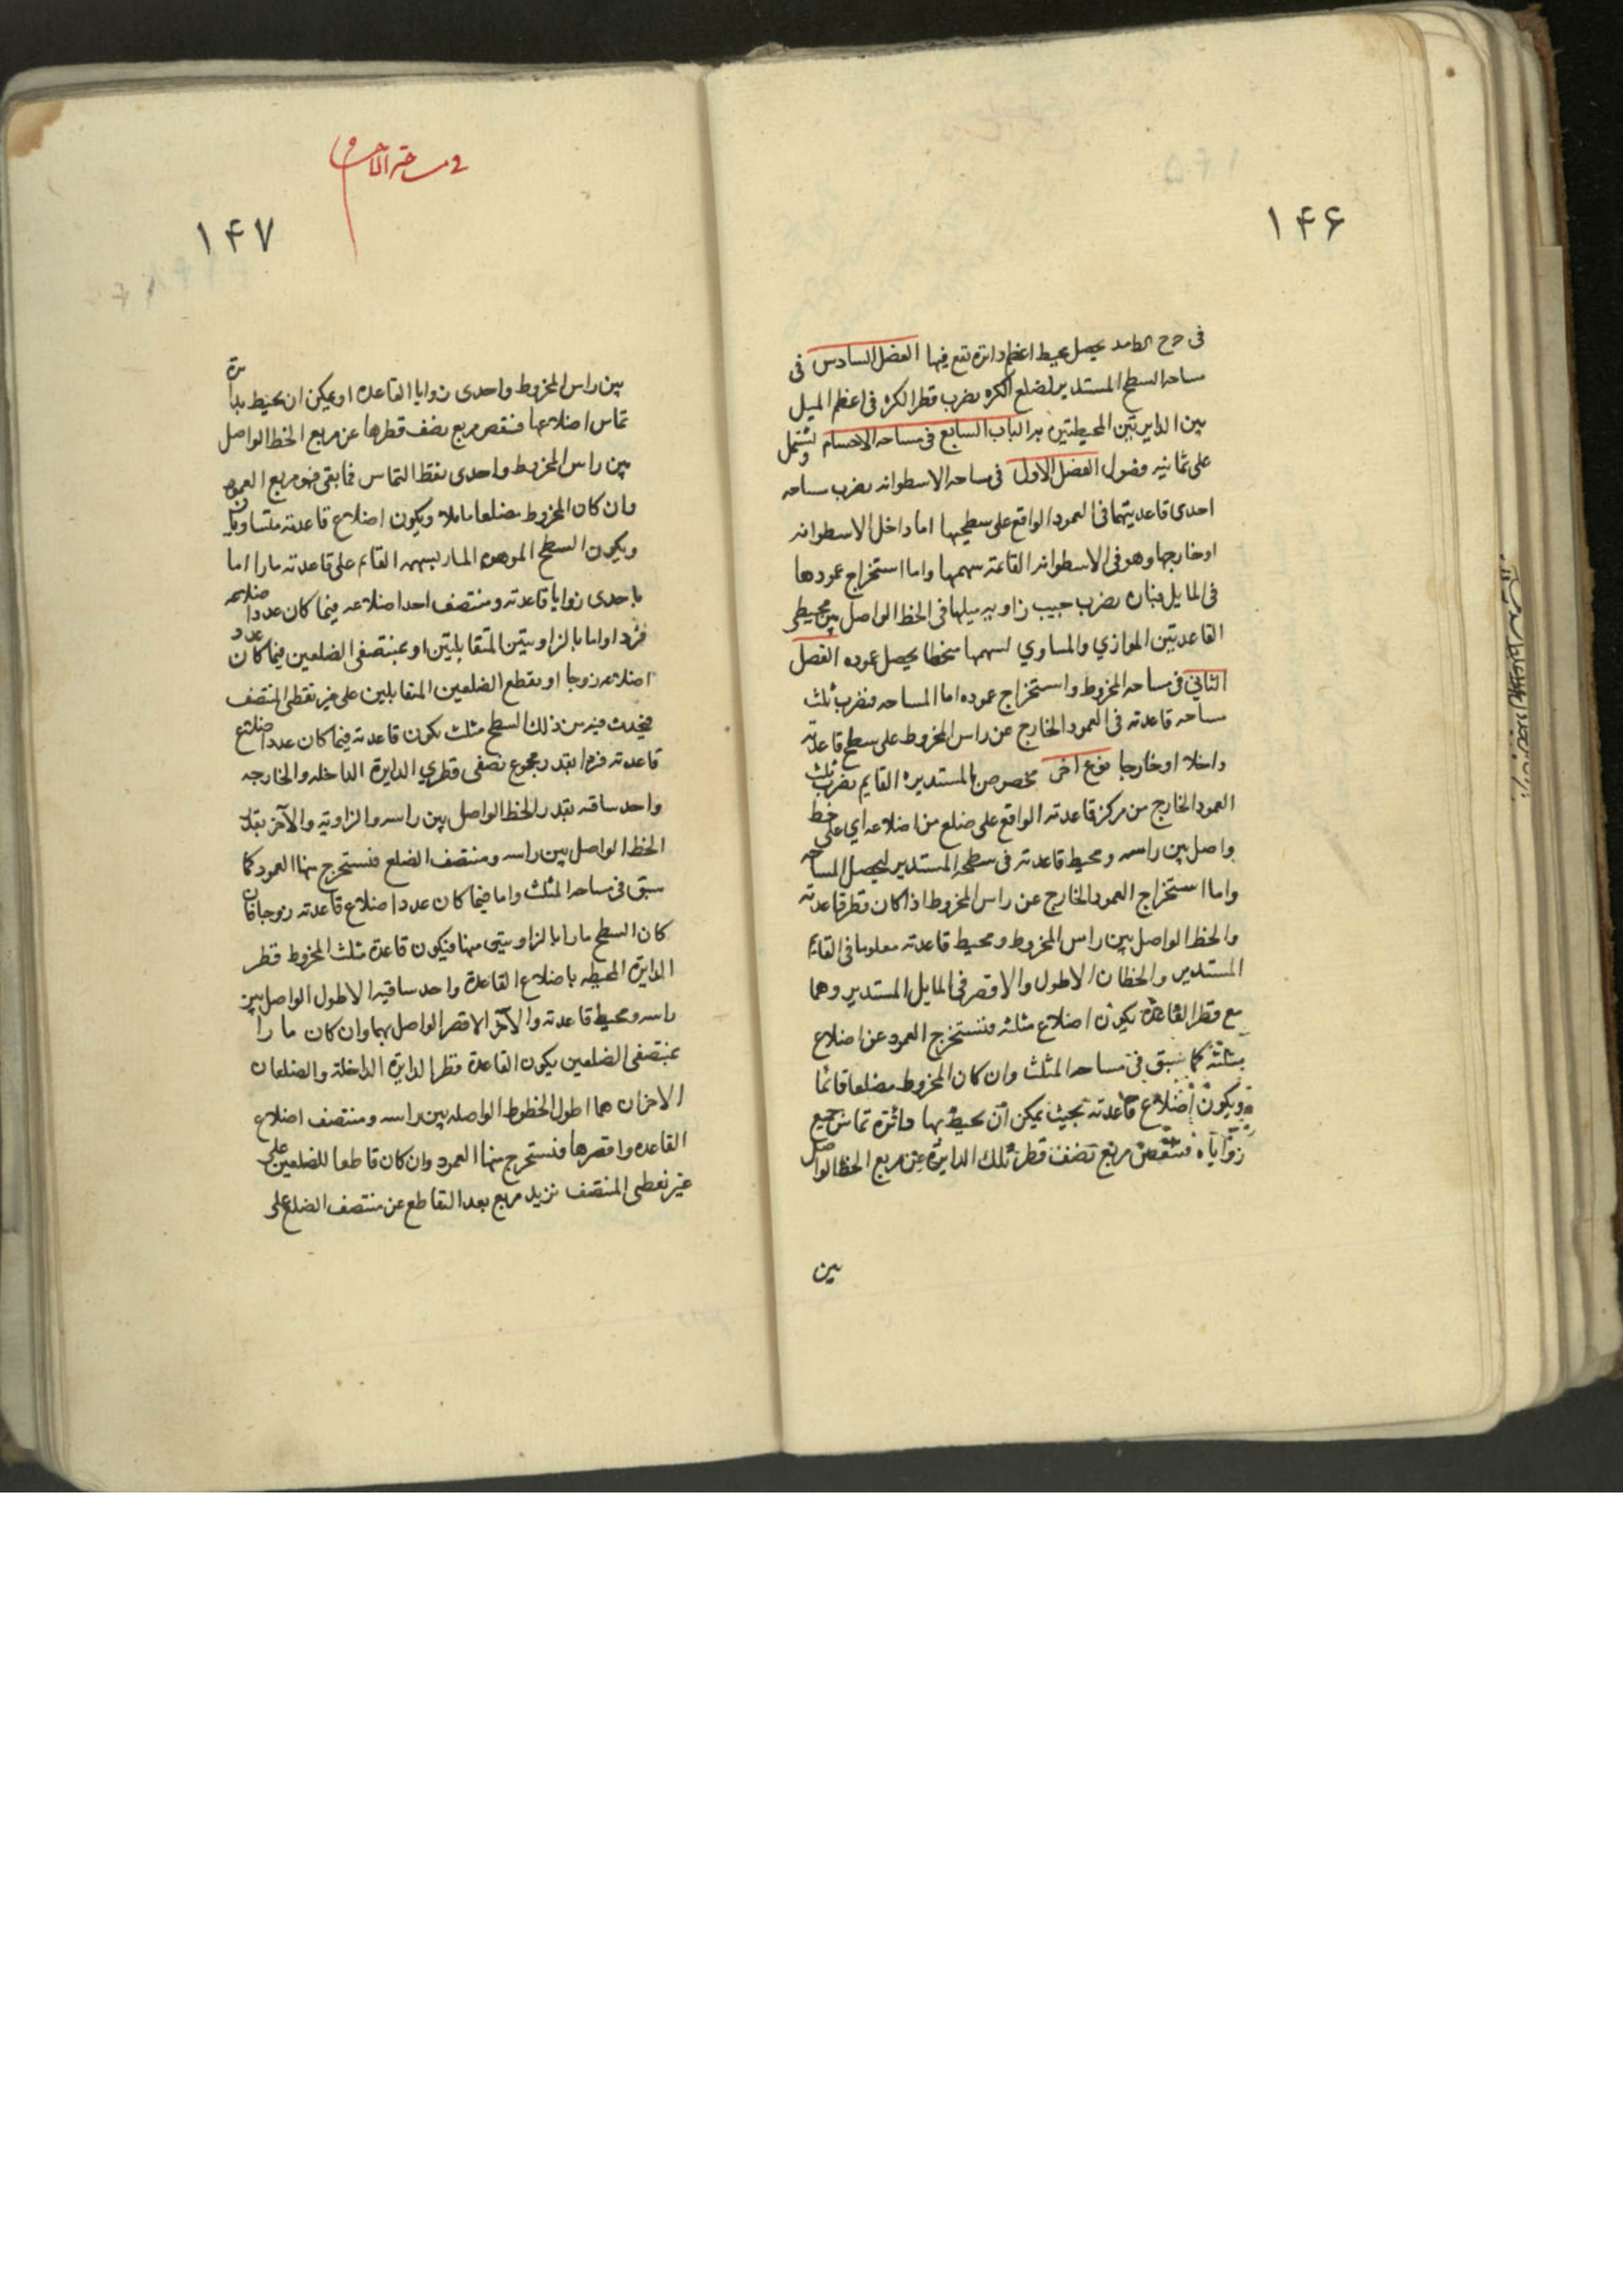 ١۴۶
فى ح ح يحصل محيط اعظم دايرة تقع فيها الفصل السادس فى
مساحه السطح المستدير لضلع الكره نضرب قطر الكره فى اعظم الميل
بين الدايرتين المحيطتين به الباب السابع فى مساحه الاجسام ويشتمل
على ثمانيه فصول الفصل الاول فى مساحه الاسطوانه نضرب مساحه
احدى قاعديتهما فى العمود الواقع على سطحيها اما داخل الاسطوانه
او خارجها وهو فى الاسطوانه القائمة سهمها واما استخراج عمودها
فى المايل فبان نضرب جيب زاويه ميلها فى الخط الواصل بين محيطى
القاعدتين الموازي والمساوي لسهمها منحطا يحصل عموده الفصل
الثاني فى مساحه المخروط واستخراج عموده اما المساحه فنضرب ثلث
مساحه قاعدته فى العمود الخارج عن راس المخروط على سطح قاعدته
داخلا او خارجا نوع اخر مخصوص بالمستديره القايم نضرب ثلث
العمود الخارج من مركز قاعدته الواقع على ضلع من اضلاعه اي على خط
واصل بين راسه ومحيط قاعدته فى سطحه المستدير ليحصل المساحه
واما استخراج العمود الخارج عن راس المخروط اذا كان قطر قاعدته
والخط الواصل بين راس المخروط ومحيط قاعدته معلوما فى القائم
المستدير والخطان الاطول والاقصر فى المايل المستدير وهما
مع قطر القاعدة يكون اضلاع مثلثه فنستخرج العمود عن اضلاع
مثلثه كما سبق فى مساحه المثلث وان كان المخروط مضلعا قائما
ويكون اضلاع قاعدته بحيث يمكن ان يحيط بها دائرة تماس جميع
زواياه فننقص مربع نصف قطر تلك الدايرة عن مربع الخط الواصل
بين
فى مساحة الاجسام
١۴٧
بين راس المخروط واحدى زوايا القاعدة او يمكن ان يحيط بدايرة
تماس اضلاعها فنقص مربع نصف قطرها عن مربع الخط الواصل
بين راس المخروط واحدى نقط التماس فما بقى فهو مربع العمود
وان كان المخروط مضلعا مايلا ويكون اضلاع قاعدته متساويان
ويكون السطح الموهوم المار بسهمه القايم على قاعدته مارا اما
باحدى زوايا قاعدته ومنتصف احد اضلاعه فيما كان عدد اضلاعه
فردا واما بالزاويتين المتقابلتين او بمنتصفى الضلعين فيما كان عدد
اضلاعه زوجا او بقطع الضلعين المتقابلين على غير نقطى المنتصف
فيحدث فيه من ذلك السطح مثلث يكون قاعدته فيما كان عدد اضلاع
قاعدته فردا بقدر مجموع نصفى قطري الدايرة الداخله والخارجه
واحد ساقه بقدر الخط الواصل بين راسه والزاويه والآخر بقدر
الخط الواصل بين راسه ومنتصف الضلع فنستخرج منها العمود كما
سبق فى مساحه المثلث واما فيما كان عدد اضلاع قاعدته زوجا فان
كان السطح مارا بالزاويتين منها فيكون قاعدة مثلث المخروط قطر
الدايرة المحيطه باضلاع القاعدة واحد ساقيه الاطول الواصل بين
راسه ومحيط قاعدته والآخر الاقصر الواصل بهما وان كان مارا
بمنتصفى الضلعين يكون القاعدة قطر الدايرة الداخلة والضلعان
الاخران هما اطول الخطوط الواصله بين راسه ومنتصف اضلاع
القاعده واقصرها فنستخرج منها العمود وان كان قاطعا للضلعين على
غير نقطى المنتصف نزيد مربع بعد التقاطع عن منتصف الضلع على